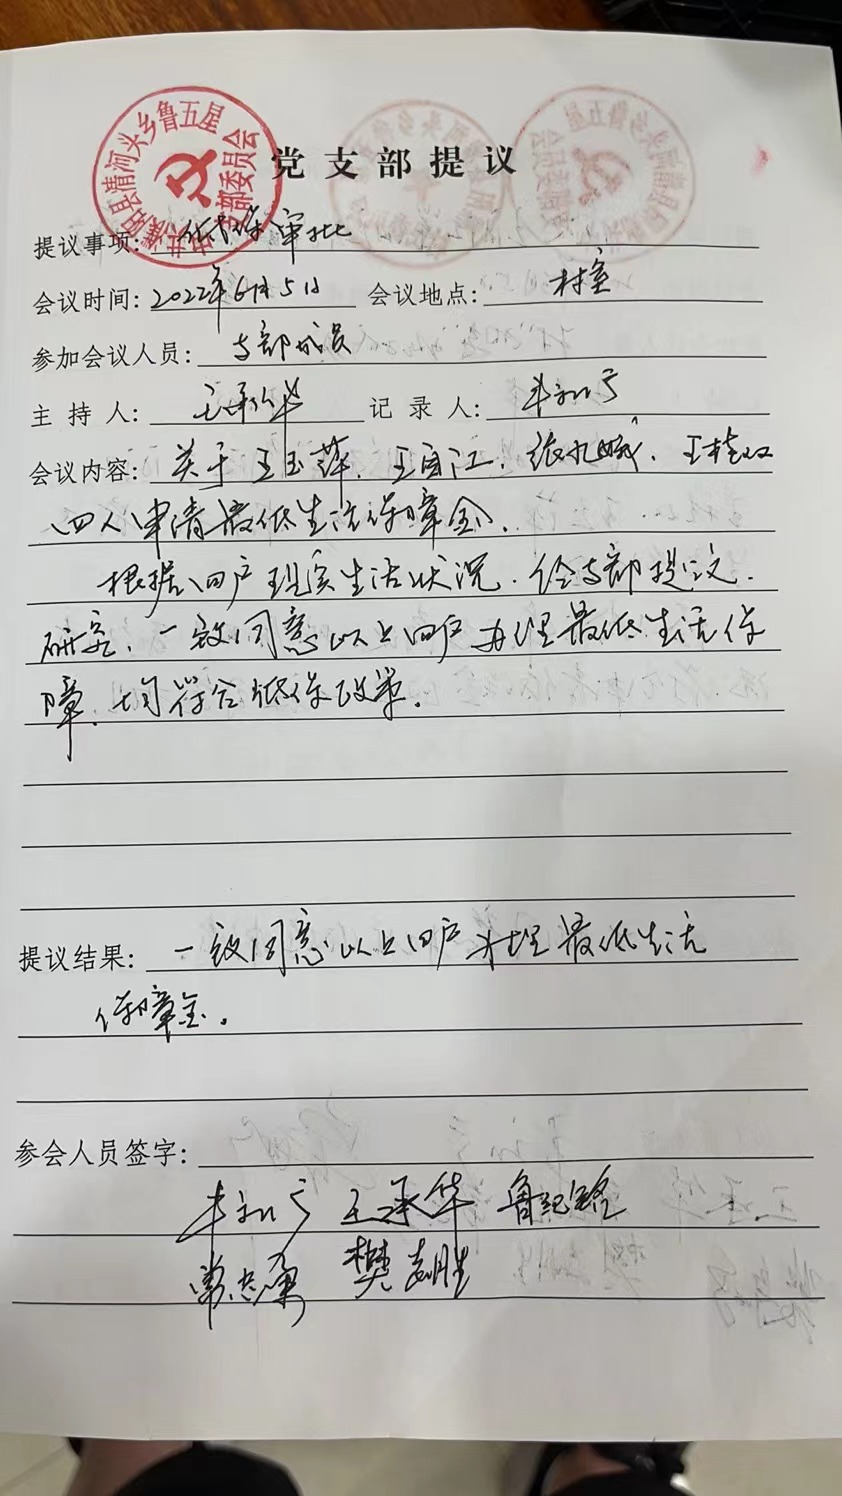 中共濮阳县清河头乡鲁五星
支部委员会
党支部提议
提议事项: 低保审批
会议时间: 2022年6月5日 会议地点: 村室
参加会议人员: 支部成员
主持人: 王承华 记录人:
会议内容: 关于王玉萍、王自江、王桂双
四人申请最低生活保障金。
根据四户现实生活状况,经支部提议,
研究,一致同意以上四户办理最低生活保
障,均符合低保政策。
提议结果: 一致同意以上四户办理最低生活
保障金。
参会人员签字:
王承华
樊